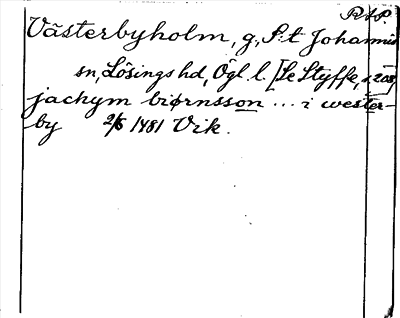 RAP.
Västerbyholm, g., S:t Johannis
sn, Lösings hd, Ögl. l. [Se Styffe, s. 208]
jachym biørnsson ... i wester-
by 2/6 1481 Vik.